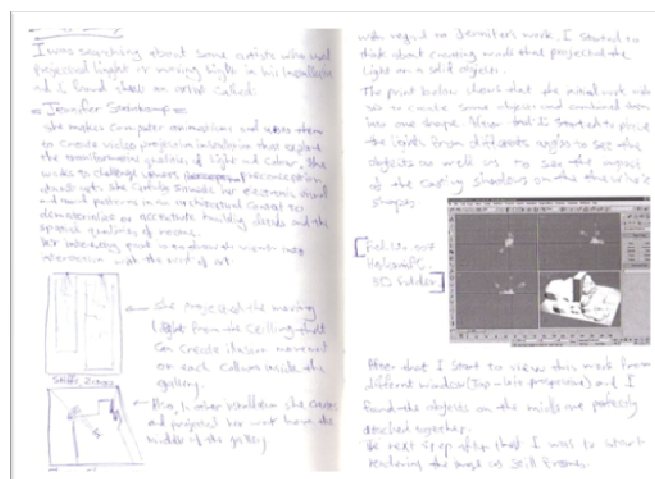 I was searching about some artists who used
projected light or moving light in his installation
and I found that an artist called:
= Jennifer Steinkamp =
she makes computer animations and uses them
to create video projection installation that exploit
the transformative qualities of light and colour. She
seeks to challenge viewers preconception
about art, she carefully her electronic visual
and sound patterns in an architectural context to
dematerialise or accentuate building details and the
spatial qualities of rooms.
her is to draw viewers into
interaction with the work of art.
she projected the moving
light from the ceiling that
can create illusion movement
on each column inside the
gallery.
Also, in other installation she creates
and projected her work from the
middle of the gallery
with regard to Jennifer's work, I started to
think about creating work that projected the
light on a solid objects.
The print below shows that the initial work
was to create some objects and combined them
into one shape. After that I started to
the lights from different angles to see the
objects as well as to see the impact
of the casting shadows on the whole
shapes.
3D
After that I start to view this work from
different window (Top - perspective) and I
found the objects on the are perfectly
attached together.
The next step after that I was to start
rendering the work as still frames.